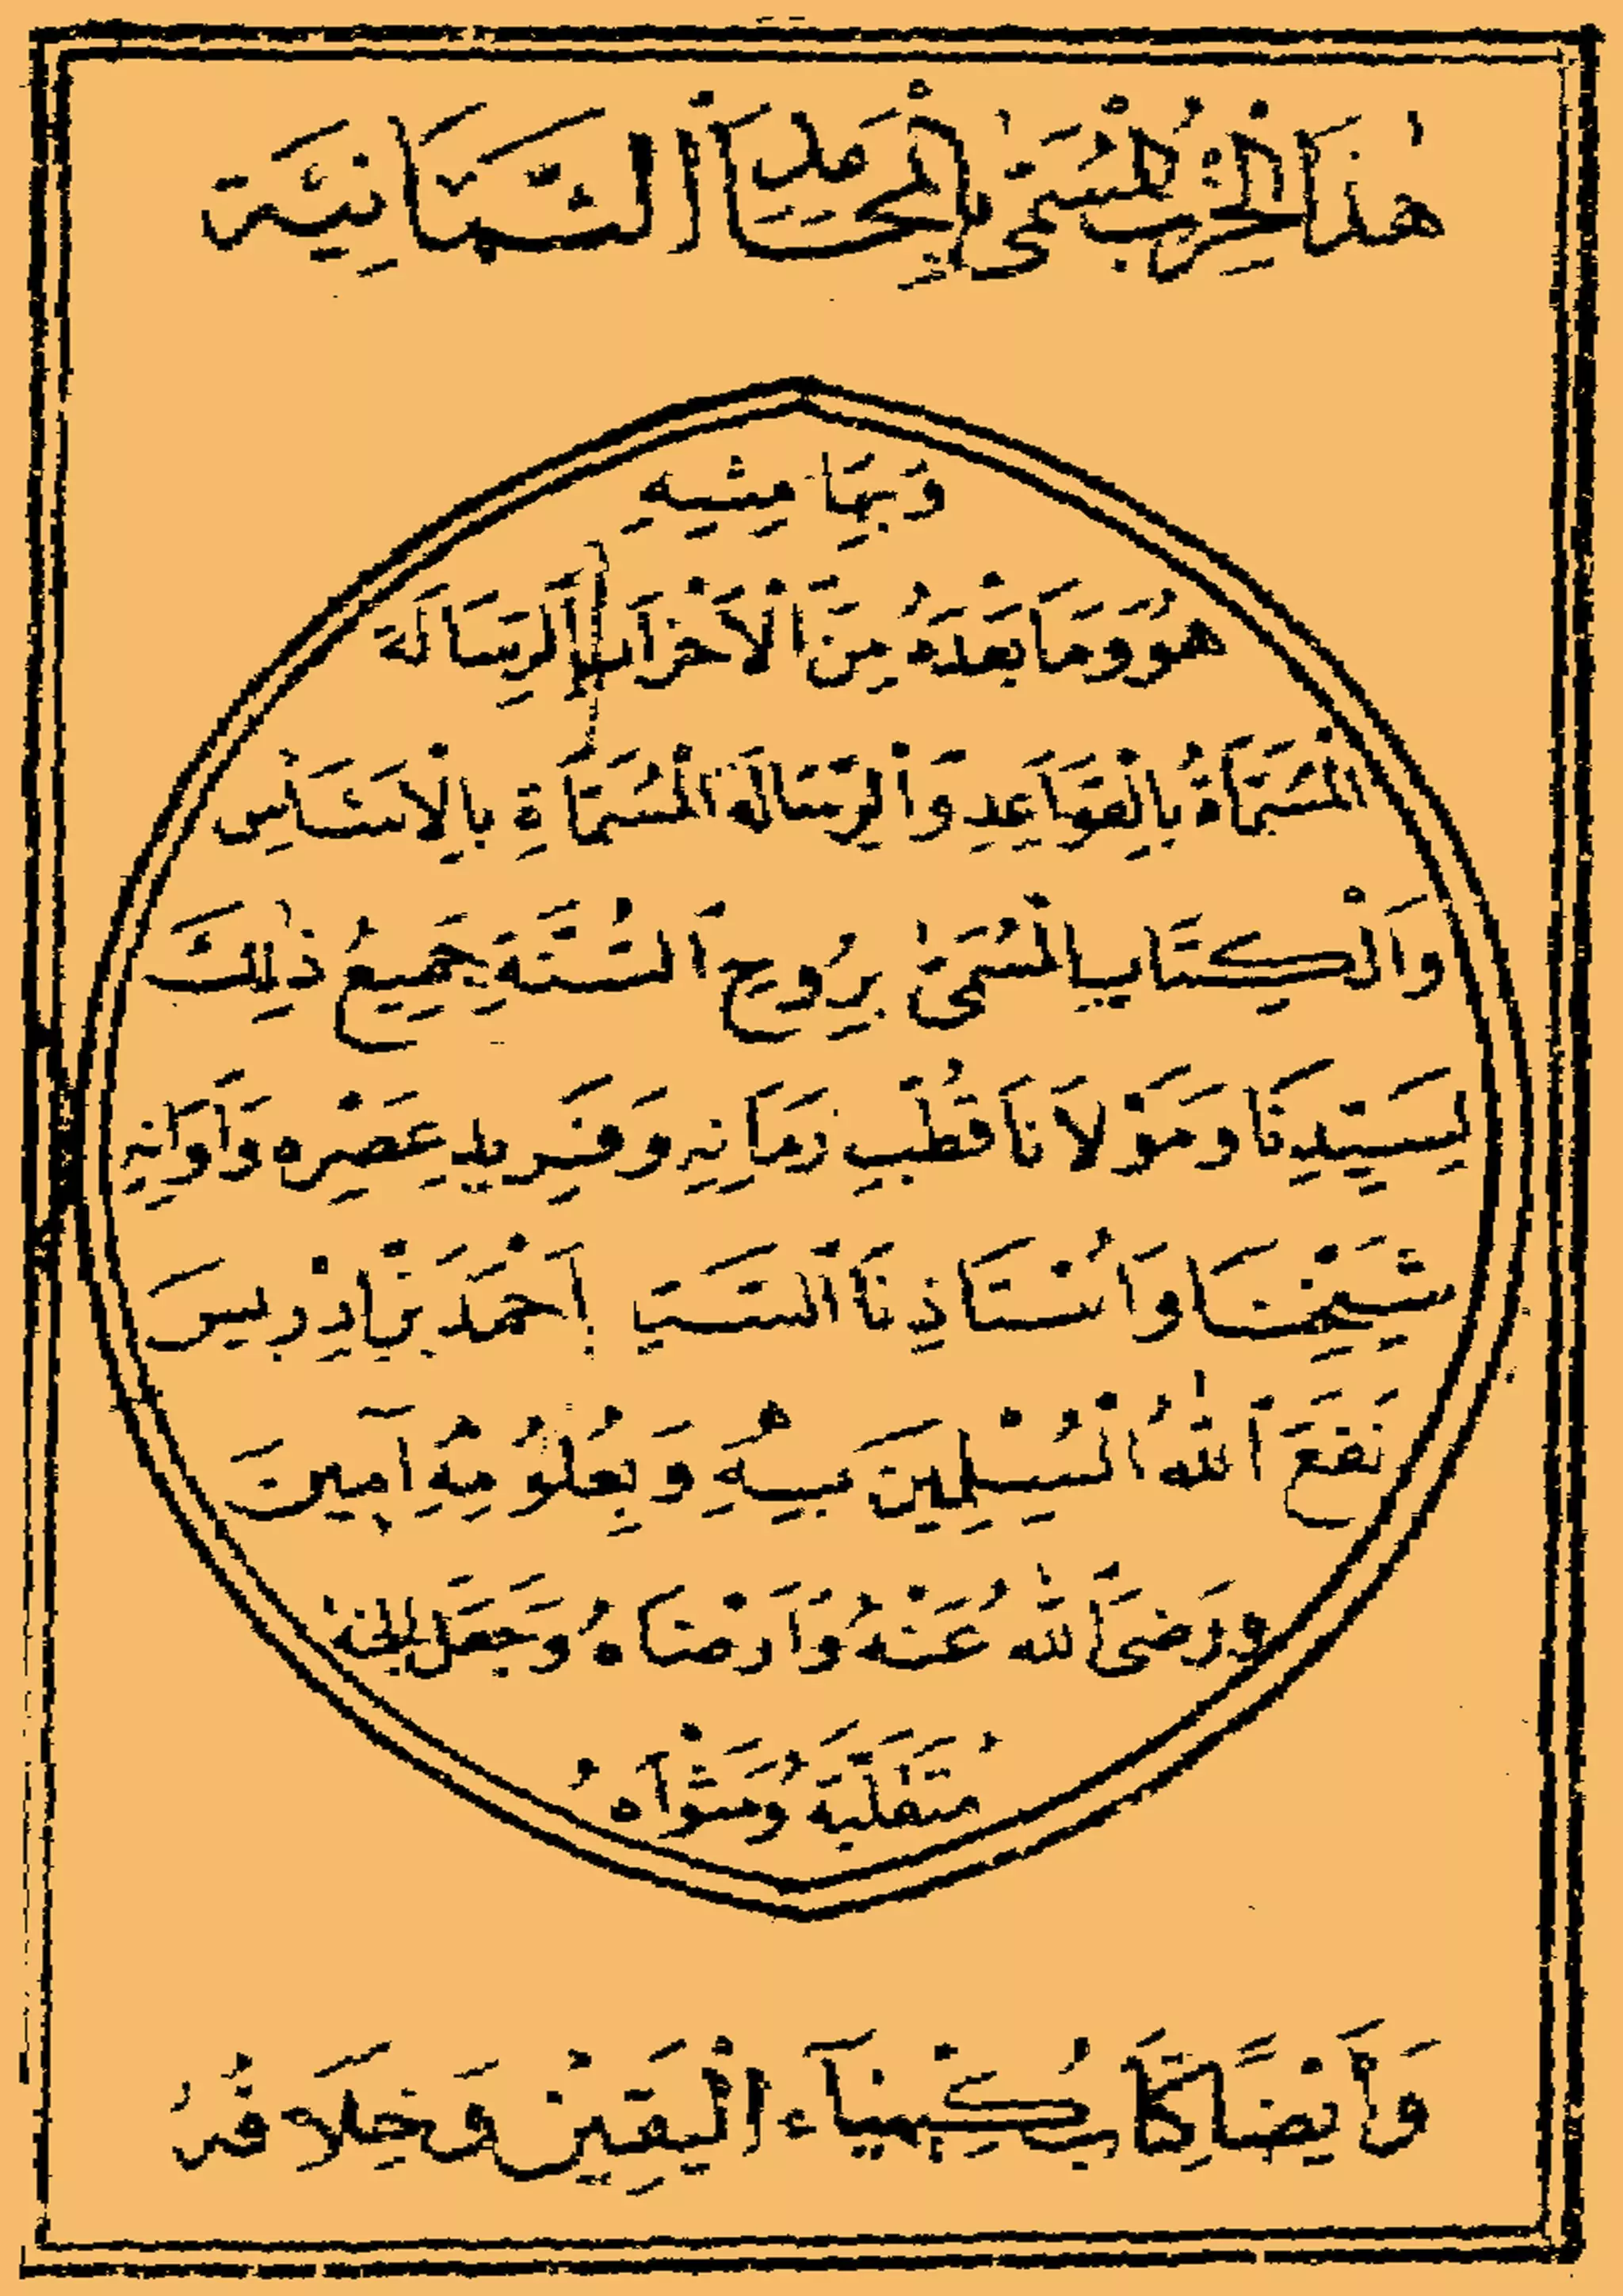 هٰذَا الْحِزْبُ الْمُسَمَّىٰ بِالْمَحَامِدِ الثَّمَانِيَّة
وَبِهَامِشِهِ
هُوَ وَمَا بَعْدَهُ مِنَ الْأَحْزَابِ اَلرِّسَالَة
الْمُسَمَّاةُ بِالْقَوَاعِدِ وَالرِّسَالَة الْمُسَمَّاةِ بِالْاَسَاسِ
وَالْكِتَابِ الْمُسَمَّىٰ بِرُوحِ السُّنَّةِ جَمِيعُ ذٰلِكَ
لِسَيِّدِنَا وَمَوْلَانَا قُطْبِ زَمَانِهِ وَفَرِيدِ عَصْرِه وَاَوَانِهِ
شَيْخِنَا وَاُسْتَاذِنَا السَّيِّد اَحْمَدَ بْنِ اِدْرِيسَ
نَفَعَ اللّٰهُ الْمُسْلِمِينَ بِهِ وَبِعُلُومِهِ آمِينَ
وَرَضِىَ اللّٰه عَنْهُ وَاَرْضَاهُ وَجَعَلَ الجنة
مُتَقَلَّبَهُ وَمَثْوَاهُ
وَأَيْضًا كِتَابُ كِيْمِيَآءِ الْيَقِيْنِ وَخِلَافُهُ